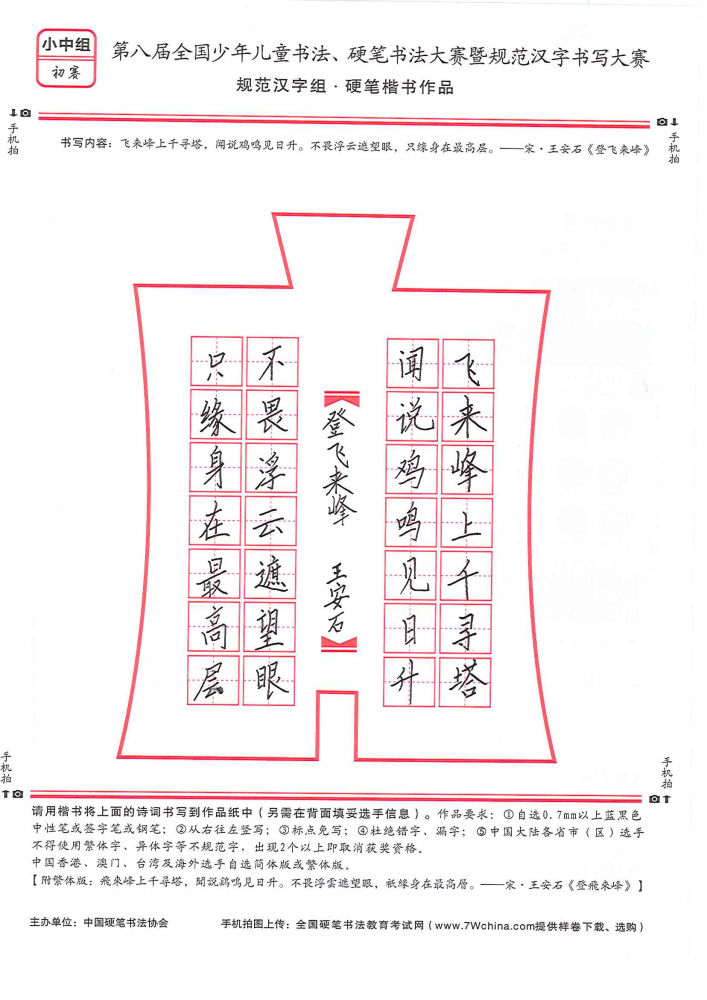 小中组
初赛
第八届全国少年儿童书法、硬笔书法大赛暨规范汉字书写大赛
规范汉字组·硬笔楷书作品
手机拍
手机拍
书写内容：飞来峰上千寻塔，闻说鸡鸣见日升。不畏浮云遮望眼，只缘身在最高层。——宋·王安石《登飞来峰》
飞来峰上千寻塔
闻说鸡鸣见日升
登飞来峰 王安石
不畏浮云遮望眼
只缘身在最高层
手机拍
手机拍
请用楷书将上面的诗词书写到作品纸中（另需在背面填妥选手信息）。作品要求：①自选0.7mm以上蓝黑色
中性笔或签字笔或钢笔；②从右往左竖写；③标点免写；④杜绝错字、漏字；⑤中国大陆各省市（区）选手
不得使用繁体字、异体字等不规范字，出现2个以上即取消获奖资格。
中国香港、澳门、台湾及海外选手自选简体版或繁体版。
【附繁体版：飛來峰上千尋塔，聞說鷄鳴見日升。不畏浮雲遮望眼，衹緣身在最高層。——宋·王安石《登飛來峰》】
主办单位：中国硬笔书法协会
手机拍图上传：全国硬笔书法教育考试网（www.7Wchina.com提供样卷下载、选购）